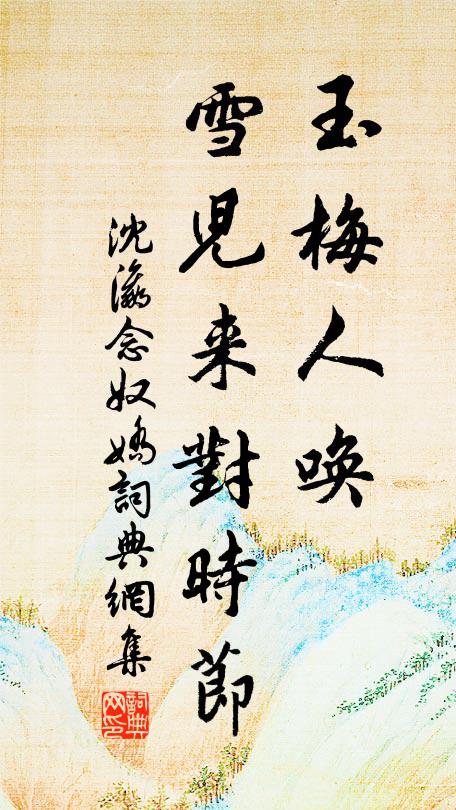 玉梅人唤
雪児来對時節
沈瀛念奴嬌詞典網集
詞典
网印